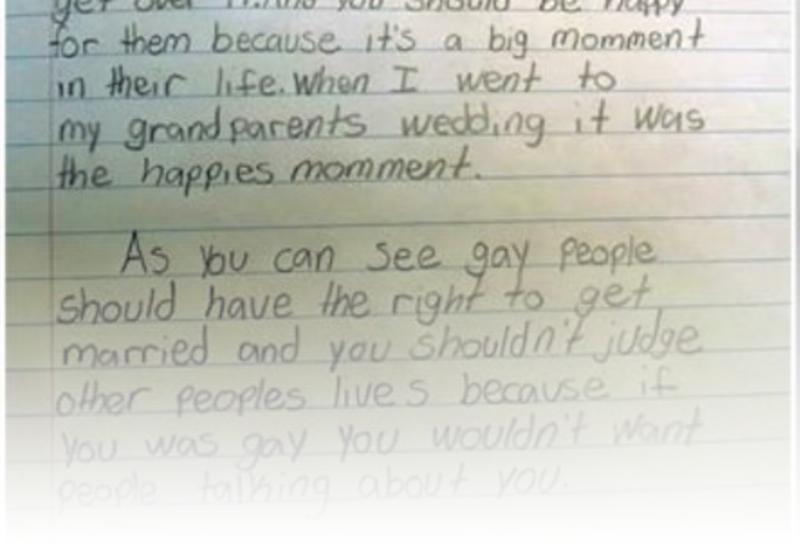 get over it. And you should be happy
for them because it's a big momment
in their life. When I went to
my grandparents wedding it was
the happies momment.
As you can see gay people
should have the right to get
married and you shouldn't judge
other peoples lives because if
you was gay you wouldn't want
people talking about you.